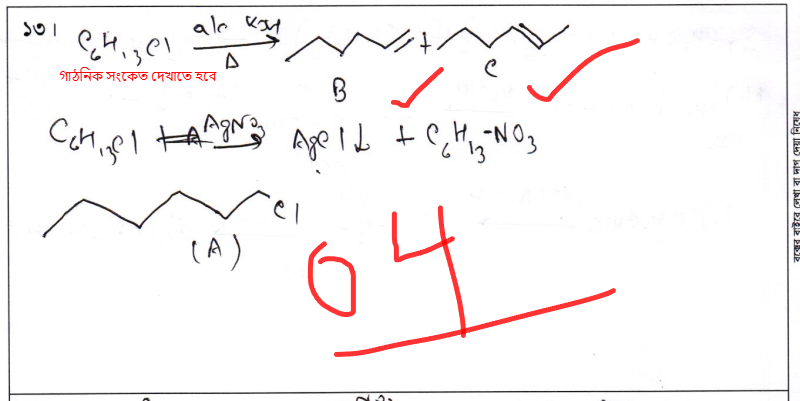 ১৩। C₆H₁₃Cl alc KOH Δ + 
গাঠনিক সংকেত দেখাতে হবে
B C
C₆H₁₃Cl + AgNO₃ → AgCl↓ + C₆H₁₃-NO₃
Cl
(A)
04
বক্সের বাইরে লেখা বা দাগ দেয়া নিষেধ